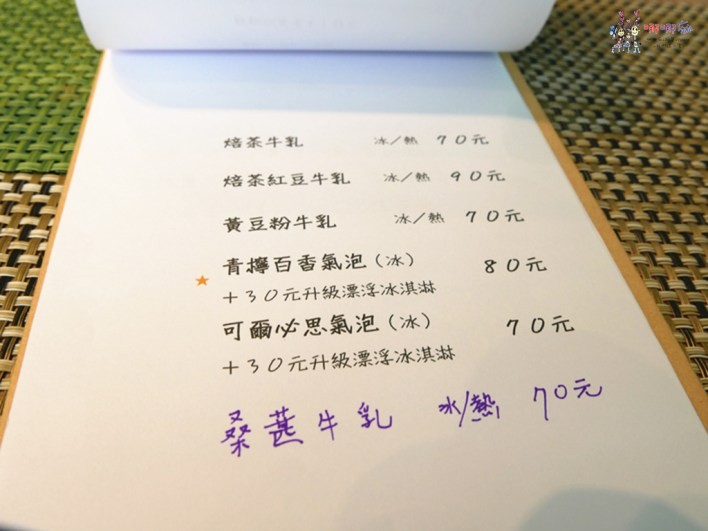 焙茶牛乳 冰/熱 70元
焙茶紅豆牛乳 冰/熱 90元
黃豆粉牛乳 冰/熱 70元
★青檸百香氣泡(冰) 80元
+30元升級漂浮冰淇淋
可爾必思氣泡(冰) 70元
+30元升級漂浮冰淇淋
桑葚牛乳 冰/熱 70元